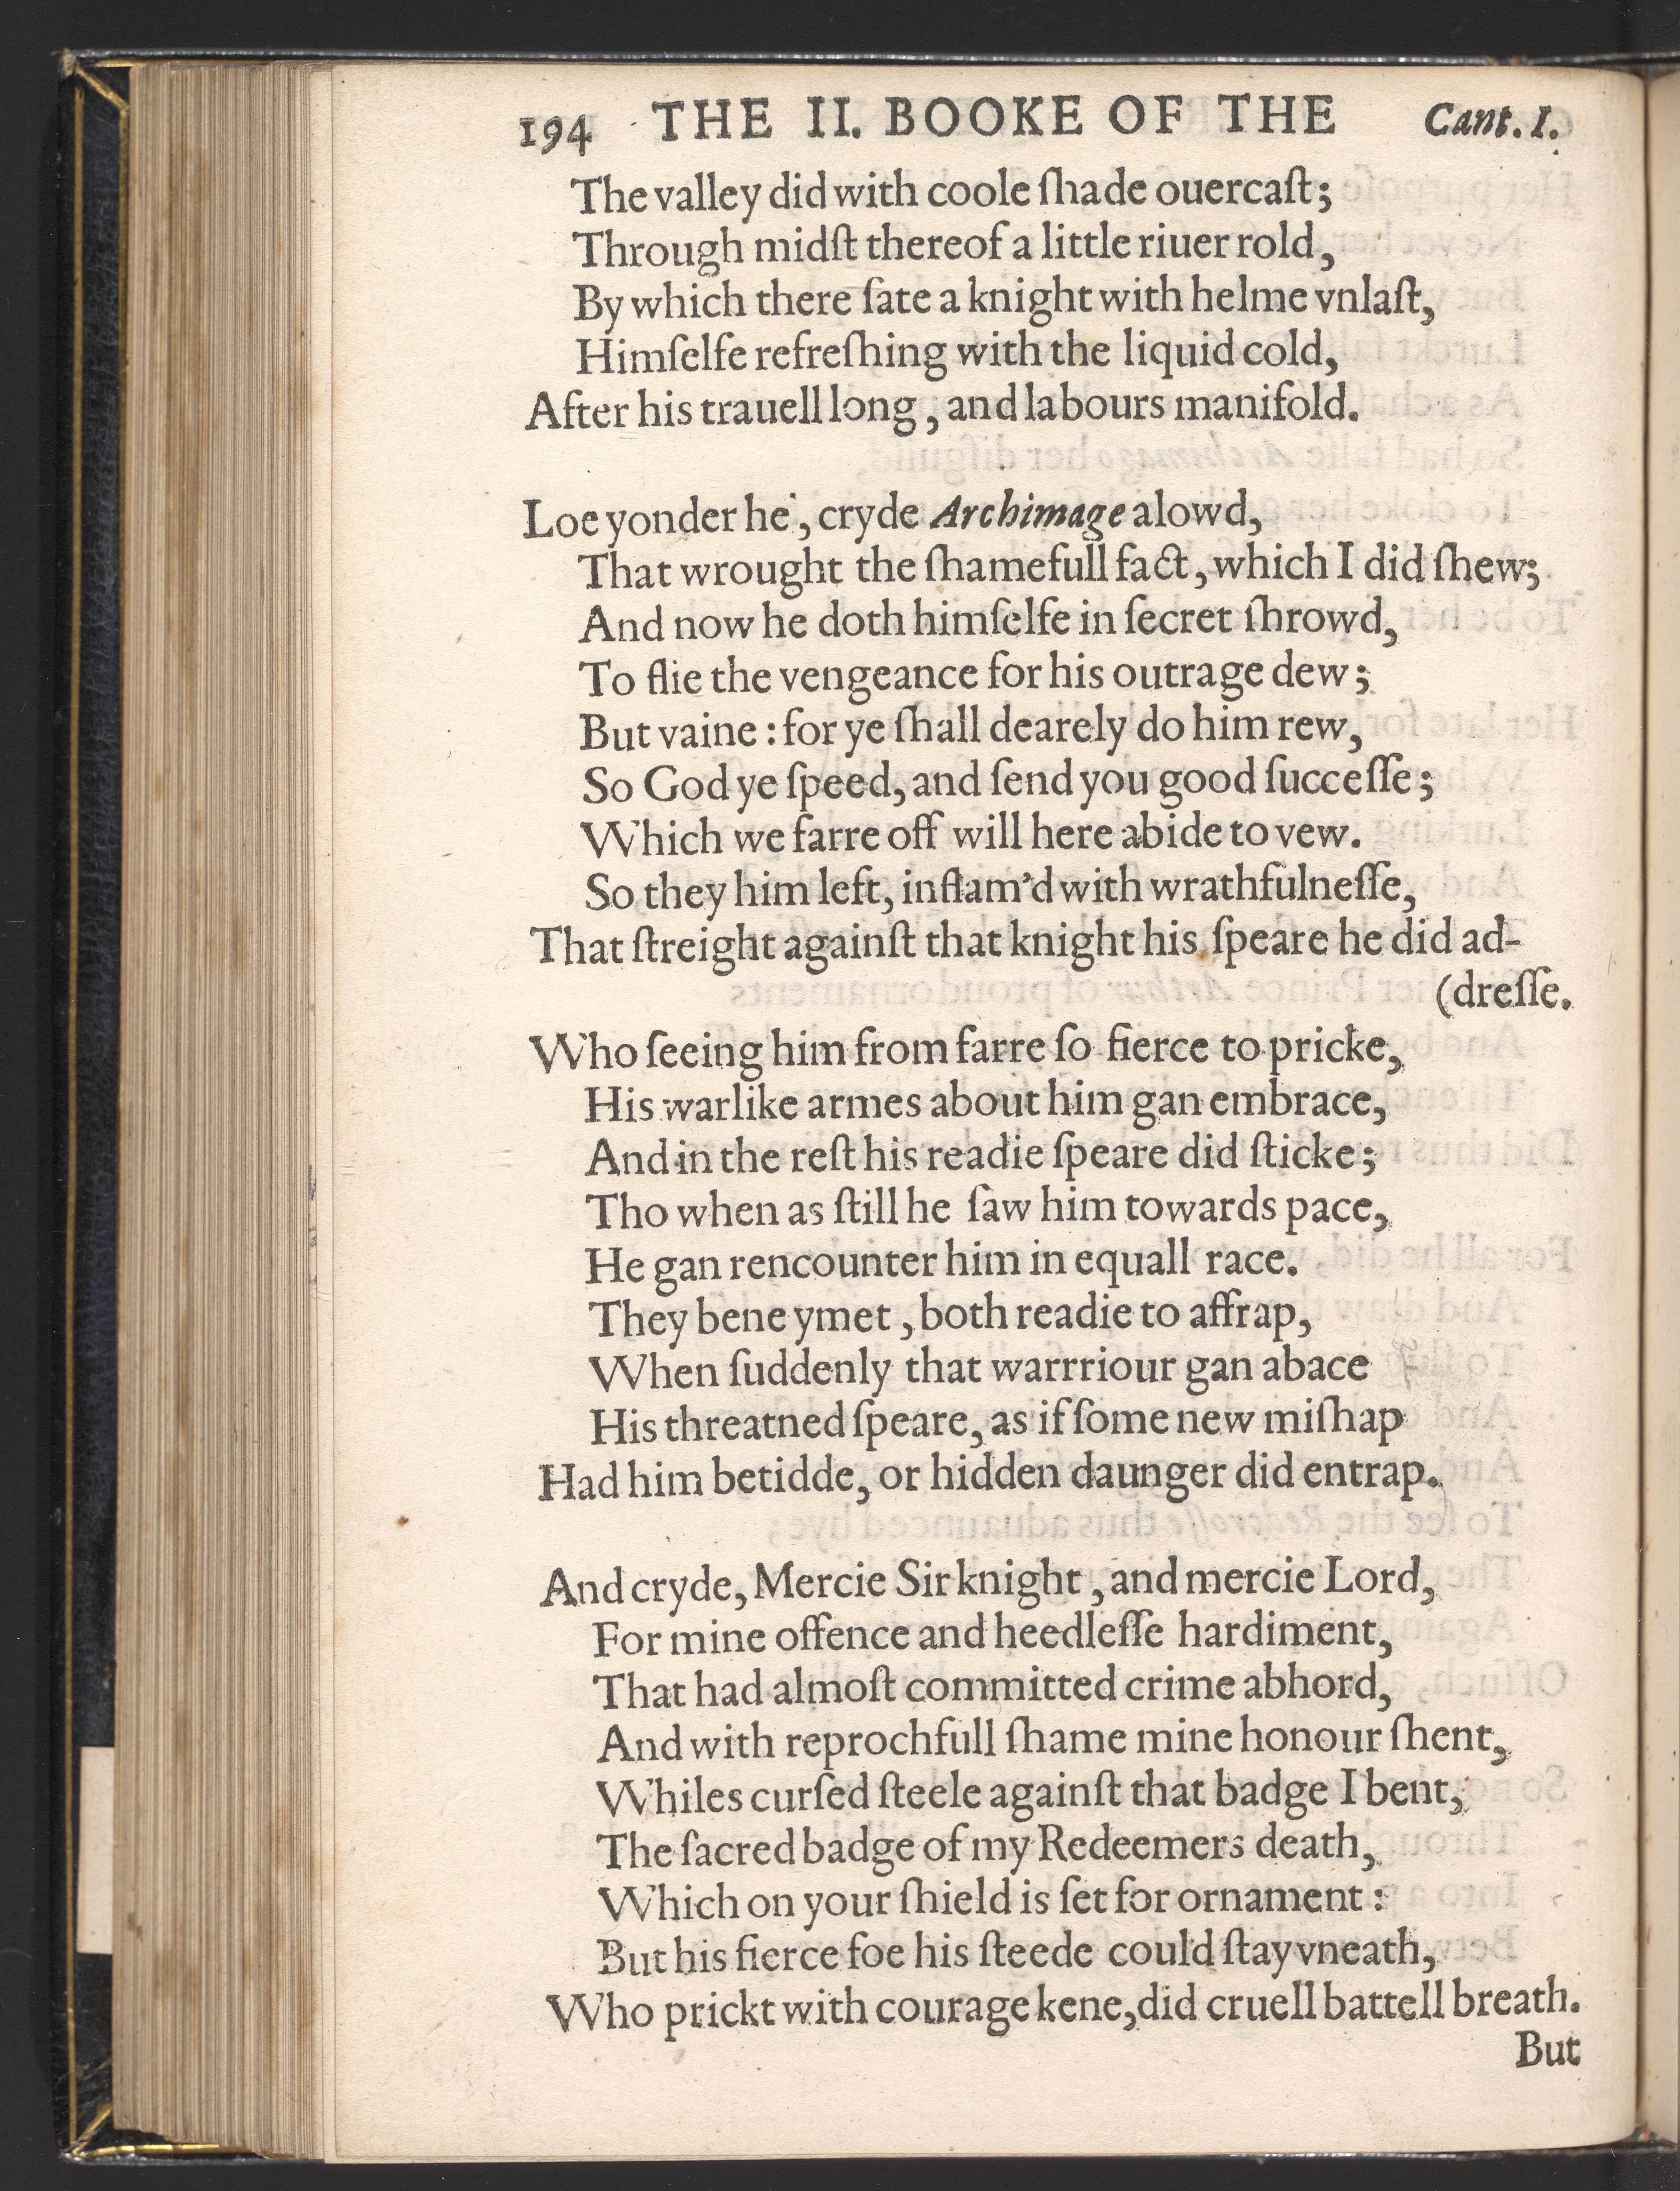 194 THE II. BOOKE OF THE Cant. I.
The valley did with coole ſhade ouercaſt;
Through midſt thereof a little riuer rold,
By which there ſate a knight with helme vnlaſt,
Himſelfe refreſhing with the liquid cold,
After his trauell long, and labours manifold.

Loe yonder he, cryde Archimage alowd,
That wrought the ſhamefull fact, which I did ſhew;
And now he doth himſelfe in ſecret ſhrowd,
To flie the vengeance for his outrage dew;
But vaine: for ye ſhall dearely do him rew,
So God ye ſpeed, and ſend you good ſucceſſe;
Which we farre off will here abide to vew.
So they him left, inflam'd with wrathfulneſſe,
That ſtreight againſt that knight his ſpeare he did ad-
(dreſſe.
Who ſeeing him from farre ſo fierce to pricke,
His warlike armes about him gan embrace,
And in the reſt his readie ſpeare did ſticke;
Tho when as ſtill he ſaw him towards pace,
He gan rencounter him in equall race.
They bene ymet, both readie to affrap,
When ſuddenly that warrriour gan abace
His threatned ſpeare, as if ſome new miſhap
Had him betidde, or hidden daunger did entrap.

And cryde, Mercie Sir knight, and mercie Lord,
For mine offence and heedleſſe hardiment,
That had almoſt committed crime abhord,
And with reprochfull ſhame mine honour ſhent,
Whiles curſed ſteele againſt that badge I bent,
The ſacred badge of my Redeemers death,
Which on your ſhield is ſet for ornament:
But his fierce foe his ſteede could ſtay vneath,
Who prickt with courage kene, did cruell battell breath.
But